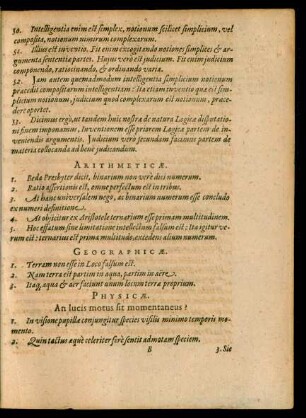 50. Intelligentia enim est simplex, notionum scilicet simplicium, vel
composita, notionum nimirum complexarum.
51. Illius est inventio. Fit enim excogitando notiones simplices & ar-
gumenta sententiæ partes. Hujus verò est judicium. Fit enim judicium
componendo, ratiocinando, & ordinando varia.
52. Jam autem quemadmodum intelligentia simplicium notionum
præcedit compositarum intelligentiam: Ita etiam inventio quæ est sim-
plicium notionum, judicium quod complexarum est notionum, præce-
dere oportet.
53. Dicimus ergò, ut tandem huic nostræ de natura Logicæ disputatio-
ni finem imponamus, Inventionem esse priorem Logicæ partem de in-
veniendis argumentis. Judicium verò secundam facimus partem de
materia collocanda ad benè judicandum.
ARITHMETICÆ.
1. Beda Presbyter dicit, binarium non verè dici numerum.
2. Ratio assertionis est, omne perfectum est in tribus.
3. At hanc universalem nego, ac binarium numerum esse concludo
ex numeri definitione.
4. At objicitur ex Aristotele ternarium esse primam multitudinem.
5. Hoc effatum sine limitatione intellectum falsum est: Ita igitur ve-
rum est: ternarius est prima multitudo, excedens alium numerum.
GEOGRAPHICÆ.
1. Terram non esse in Loco falsum est.
2. Nam terra est partim in aqua, partim in aëre.
3. Itaq, aqua & aër faciunt unum locum terræ proprium.
PHYSICÆ.
An lucis motus sit momentaneus?
1. In visione pupillæ conjungitur species visilis minimo temporis mo-
mento.
2. Quin tactus æquè celeriter ferè sentit admotam speciem.
B 3. Sic